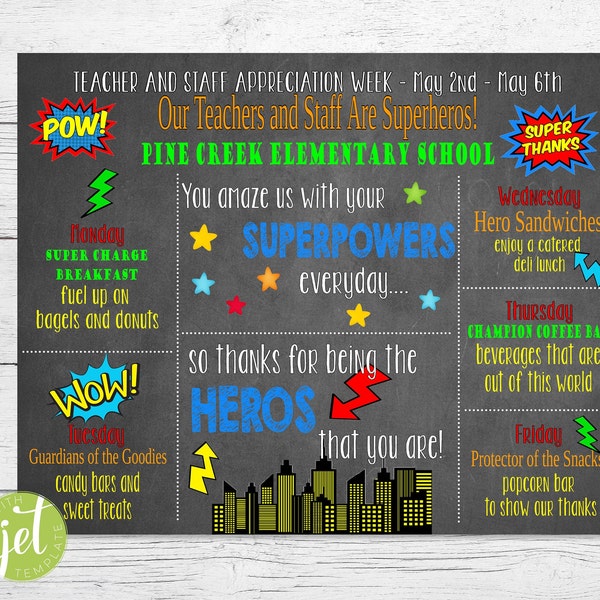 TEACHER AND STAFF APPRECIATION WEEK - May 2nd - May 6th
Our Teachers and Staff Are Superheros!
PINE CREEK ELEMENTARY SCHOOL
POW!
SUPER
THANKS
Monday
SUPER CHARGE
BREAKFAST
fuel up on
bagels and donuts
WOW!
Tuesday
Guardians of the Goodies
candy bars and
sweet treats
You amaze us with your
SUPERPOWERS
everyday....
so thanks for being the
HEROS
that you are!
Wednesday
Hero Sandwiches
enjoy a catered
deli lunch
Thursday
CHAMPION COFFEE BA
beverages that are
out of this world
Friday
Protector of the Snacks
popcorn bar
to show our thanks
jet
TEMPLATE